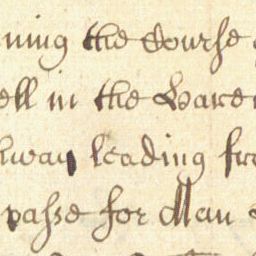 ning the Course
ell in the Gare
hway leading fro
passe for Man